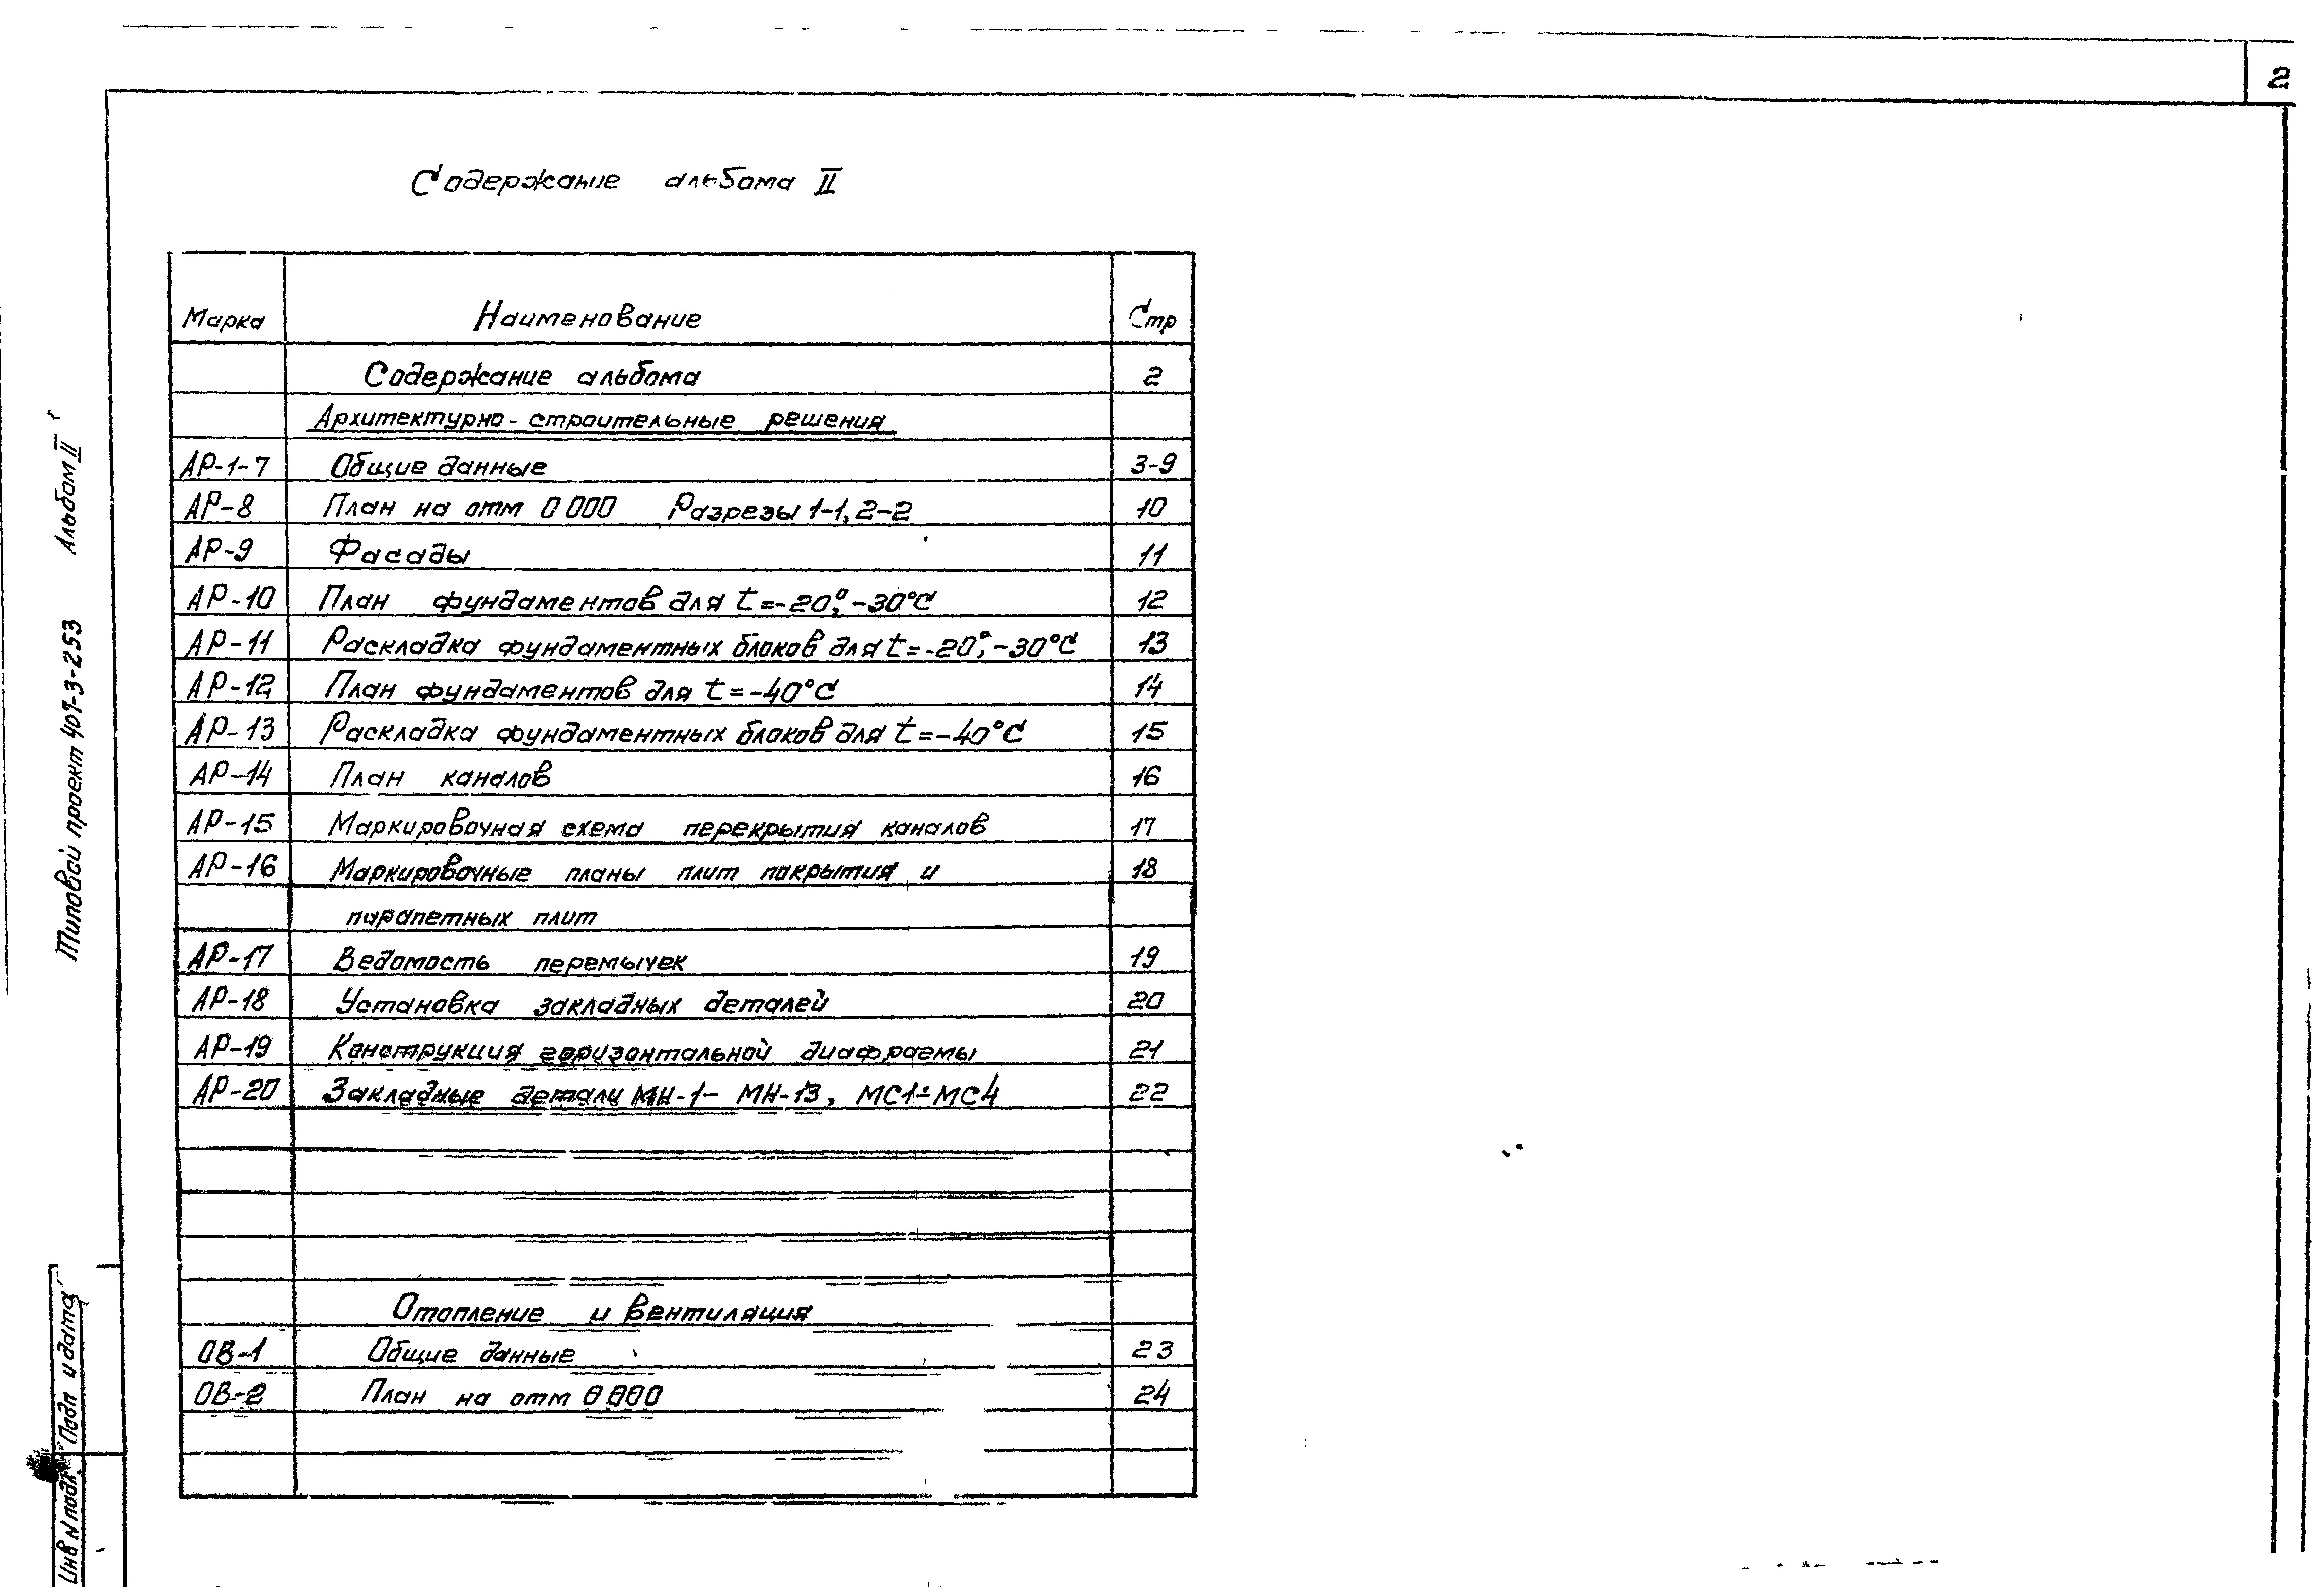 2
Содержание альбома II
Марка Наименование Стр
Содержание альбома 2
Архитектурно-строительные решения
АР-1-7 Общие данные 3-9
АР-8 План на отм 0 000 Разрезы 1-1, 2-2 10
АР-9 Фасады 11
АР-10 План фундаментов для t=-20°, -30°С 12
АР-11 Раскладка фундаментных блоков для t=-20°; -30°С 13
АР-12 План фундаментов для t=-40°С 14
АР-13 Раскладка фундаментных блоков для t=-40°С 15
АР-14 План каналов 16
АР-15 Маркировочная схема перекрытия каналов 17
АР-16 Маркировочные планы плит покрытия и 18
парапетных плит
АР-17 Ведомость перемычек 19
АР-18 Установка закладных деталей 20
АР-19 Конструкция горизонтальной диафрагмы 21
АР-20 Закладные детали МН-1- МН-13, МС1÷МС4 22
Отопление и вентиляция
ОВ-1 Общие данные 23
ОВ-2 План на отм 0 000 24
Типовой проект 407-3-253 Альбом II
Инв N подл. Подп и дата